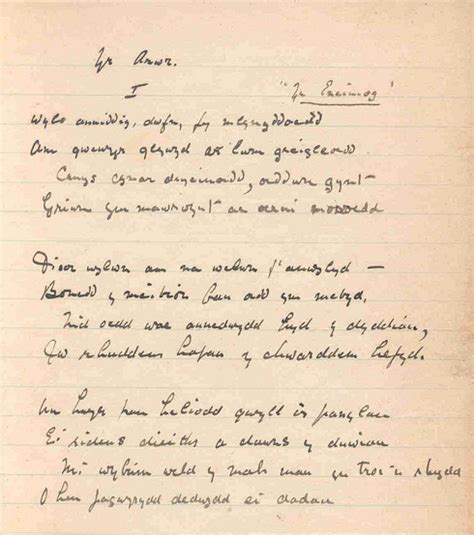 Yr Arwr.
I
"Yr Eneiniog"
Wylo anniddig, dwfn, fy mlynyddoedd
Am gwewyr glywyd ar lwm greigleoedd
Canys cymar drycinoedd, oeddwn gynt
Griwn ym mawrwynt ac oerni moroedd
Dioer wylwn am na welwn f'anwylyd —
Bonedd y meibion pan oedd ym mebyd,
Nid oedd wae annedwydd hyd y dyddiau,
I'w rhuddem hafau y chwarddem hefyd.
Un hwyr pan heliodd gwyll i'r panylau
Ei sidens dieithr a dawns y duwiau
Mi wybum weld y mab mau yn troi'n rhydd
O hen fagwyrydd dedwydd ei dadau